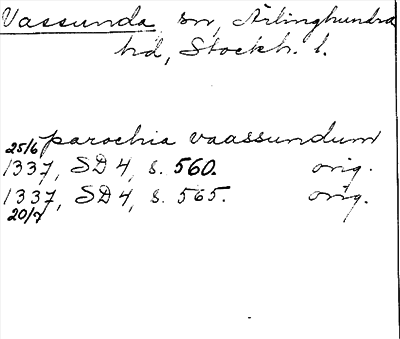 Vassunda sn, Ärlinghundra
hd, Stockh. l.
parochia vaassundum
25/6
1337, SD 4, s. 560. orig.
1337, SD 4, s. 565. orig.
20/7